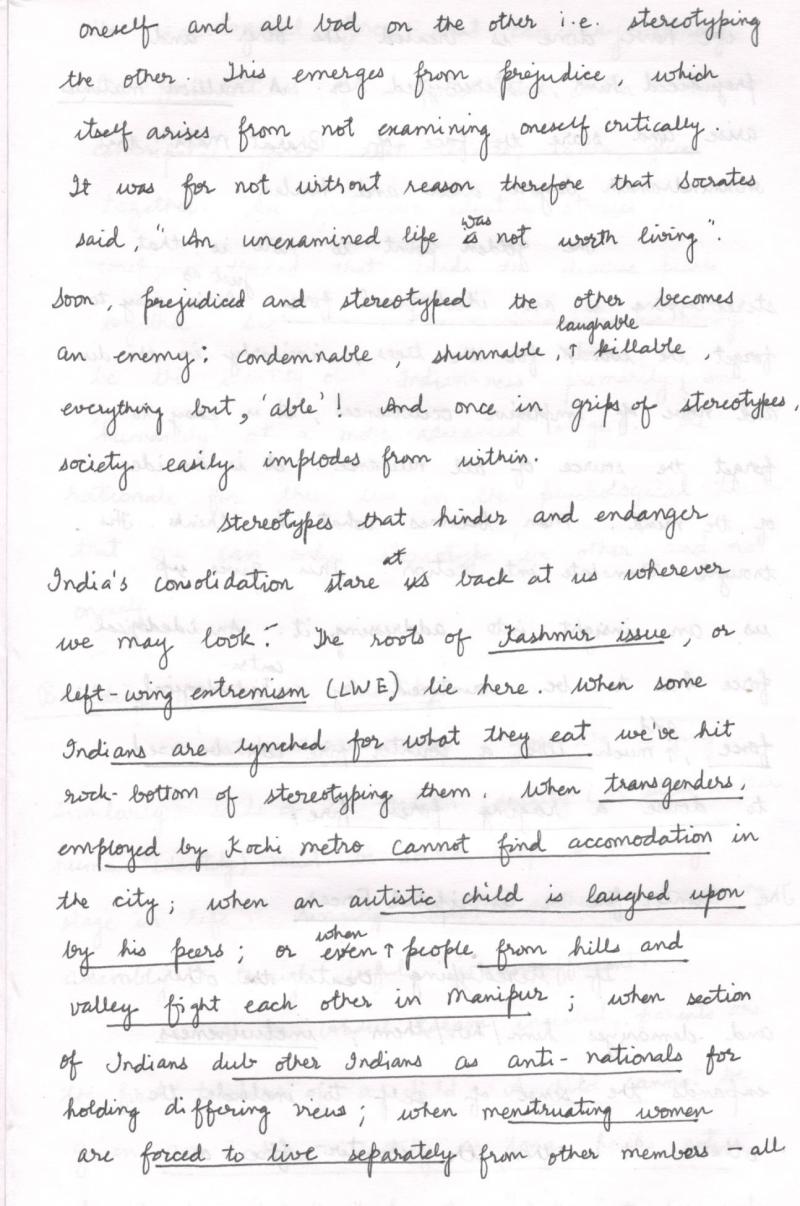 oneself and all bad on the other i.e. stereotyping
the other. This emerges from prejudice, which
itself arises from not examining oneself critically.
It was for not without reason therefore that Socrates
said, "An unexamined life was not worth living".
Soon, prejudiced and stereotyped the other becomes
an enemy; condemnable, shunnable, laughable ↑ killable,
everything but, 'able'! And once in grips of stereotypes,
society easily implodes from within.
Stereotypes that hinder and endanger
India's consolidation stare at back at us wherever
we may look:- The roots of Kashmir issue, or
left-wing extremism (LWE) lie here. When some
Indians are lynched for what they eat we've hit
rock-bottom of stereotyping them. When transgenders,
employed by Kochi metro cannot find accomodation in
the city; when an autistic child is laughed upon
by his peers; or even ↑ when people from hills and
valley fight each other in Manipur; when section
of Indians dub other Indians as anti-nationals for
holding differing views; when menstruating women
are forced to live separately from other members - all